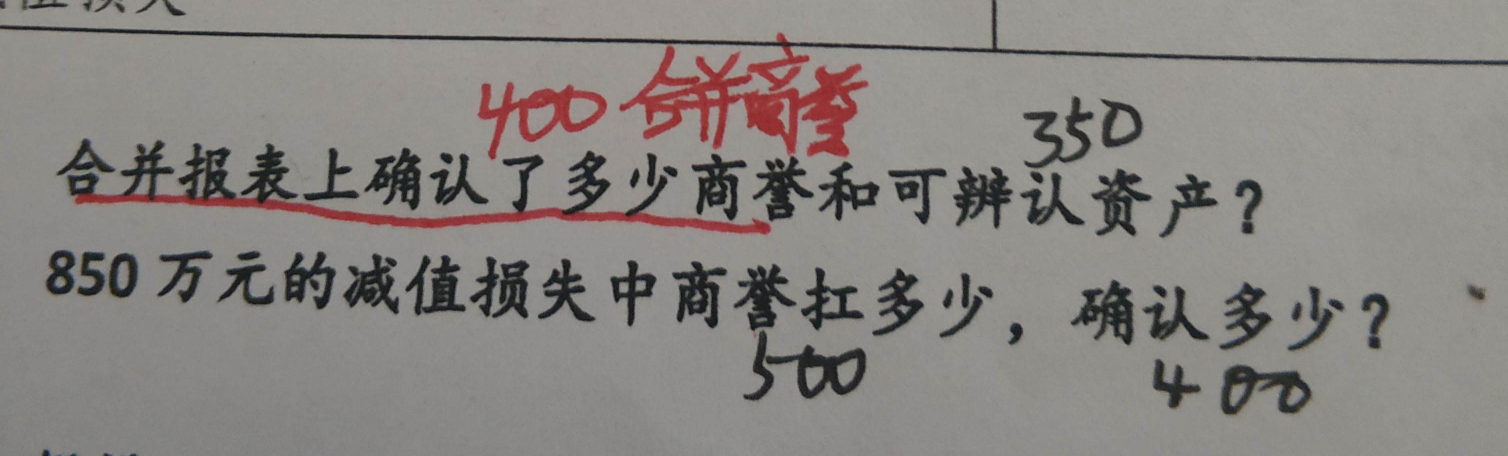 400 合并商誉
350
合并报表上确认了多少商誉和可辨认资产？
850 万元的减值损失中商誉扛多少，确认多少？
500
400